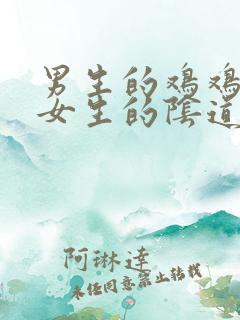 男生的鸡鸡
女生的陰道
阿琳達
未经同意禁止转载